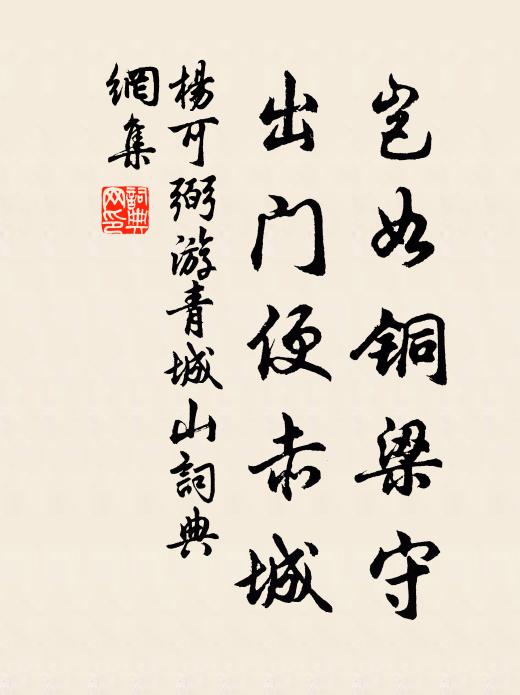 岂如铜梁守
出门便赤城
楊可弼游青城山詞典
網集
詞典网印